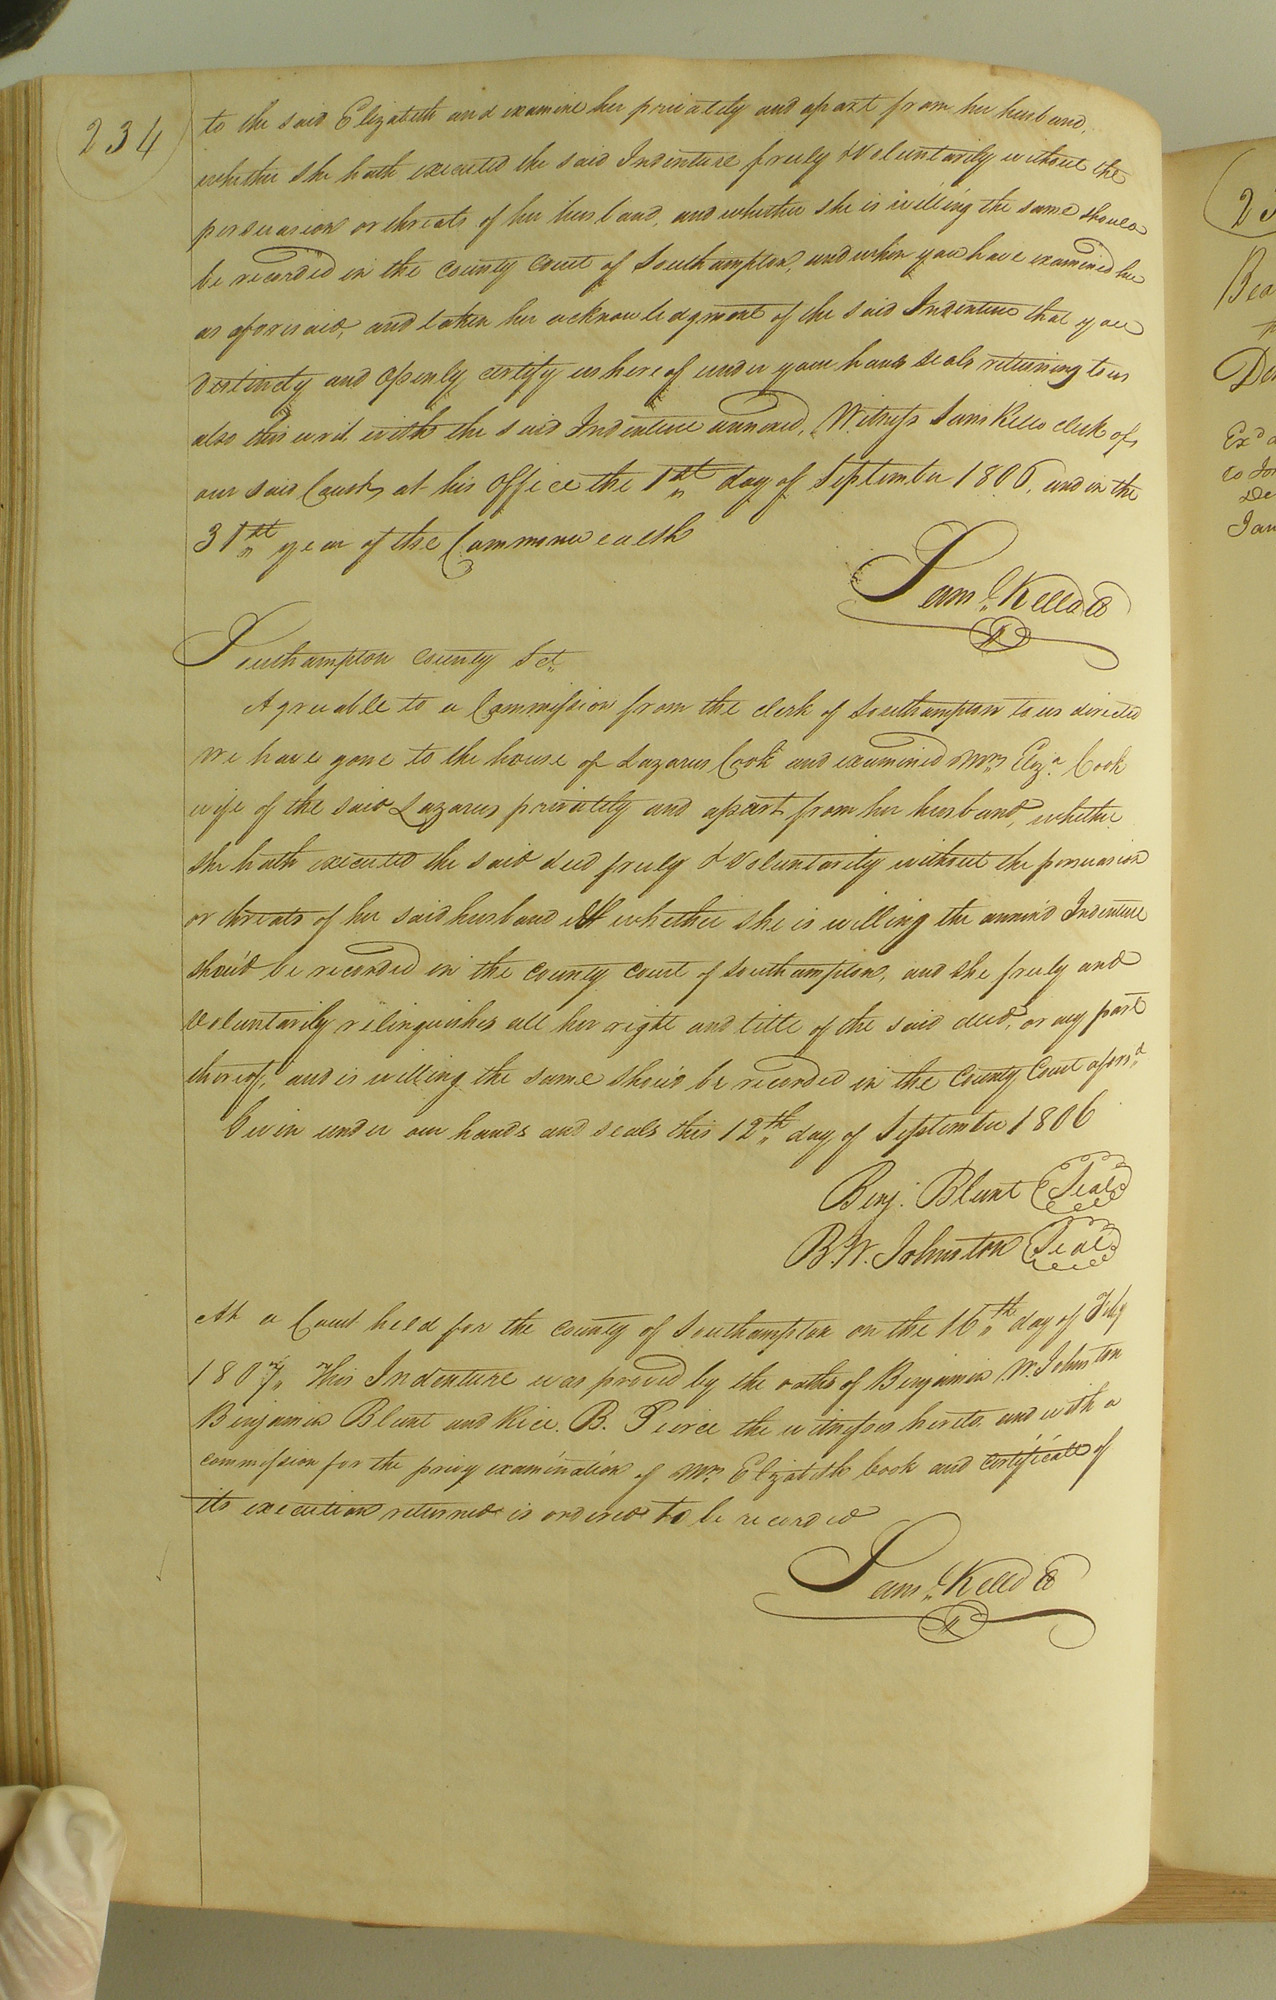 234
to the said Elizabeth and examine her privately and apart from her husband,
whether she hath executed the said Indenture freely & Voluntarily without the
persuasion or threats of her husband, and whether she is willing the same should
be recorded in the county court of Southampton, and when you have examined her
as aforesaid, and taken her acknowledgment of the said Indenture that you
distinctly and Openly certify us hereof under your hands seals returning to us
also this writ, with the said Indenture annexed, Witness Sam Kello clerk of
our said Court, at his Office the 1st day of September 1806, and in the
31st year of the Commonwealth
Saml. Kello Cl
Southampton County Sct.
Agreeable to a Commission from the clerk of Southampton to us directed
We have gone to the house of Lazarus Cook and examined Mrs Eliza. Cook
wife of the said Lazarus privately and apart from her husband, whether
she hath executed the said deed freely & Voluntarily without the persuasion
or threats of her said husband & whether she is willing the annex'd Indenture
shou'd be recorded in the county court of Southampton, and she freely and
Voluntarily relinquishes all her right and title of the said deed, or any part
thereof, and is willing the same shou'd be recorded in the County Court afors.d
Given under our hands and seals this 12th day of September 1806
Benj. Blunt Seal
B. W. Johnston Seal
At a Court held for the county of Southampton on the 16th day of Feby
1807, This Indenture was proved by the oaths of Benjamin W. Johnston
Benjamin Blunt and Rice. B. Peirce the witnesses hereto. and with a
commission for the privy examination of Mrs Elizabeth Cook and certificate of
its execution returned is ordered to be recorded
Saml. Kello Cl
Ex.d
De
Jan